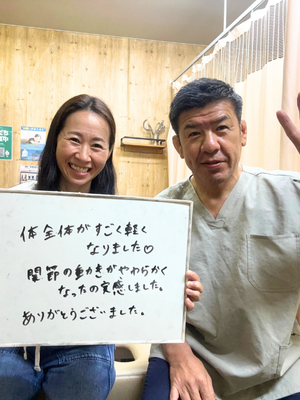 体全体がすごく軽く
なりました♡
関節の動きがやわらかく
なったの実感しました。
ありがとうございました。